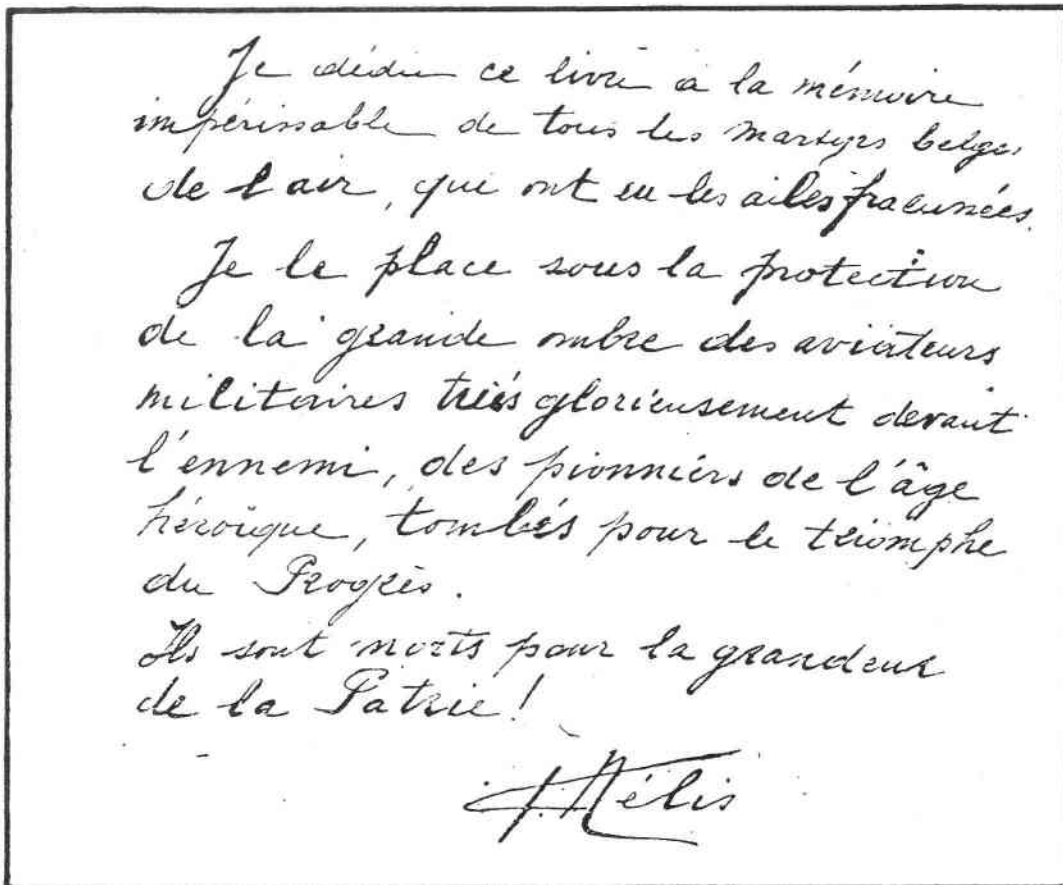 Je dédie ce livre à la mémoire
impérissable de tous les martyrs belges
de l'air, qui ont eu les ailes fracassées.
Je le place sous la protection
de la grande ombre des aviateurs
militaires tués glorieusement devant
l'ennemi, des pionniers de l'âge
héroïque, tombés pour le triomphe
du Progrès.
Ils sont morts pour la grandeur
de la Patrie!